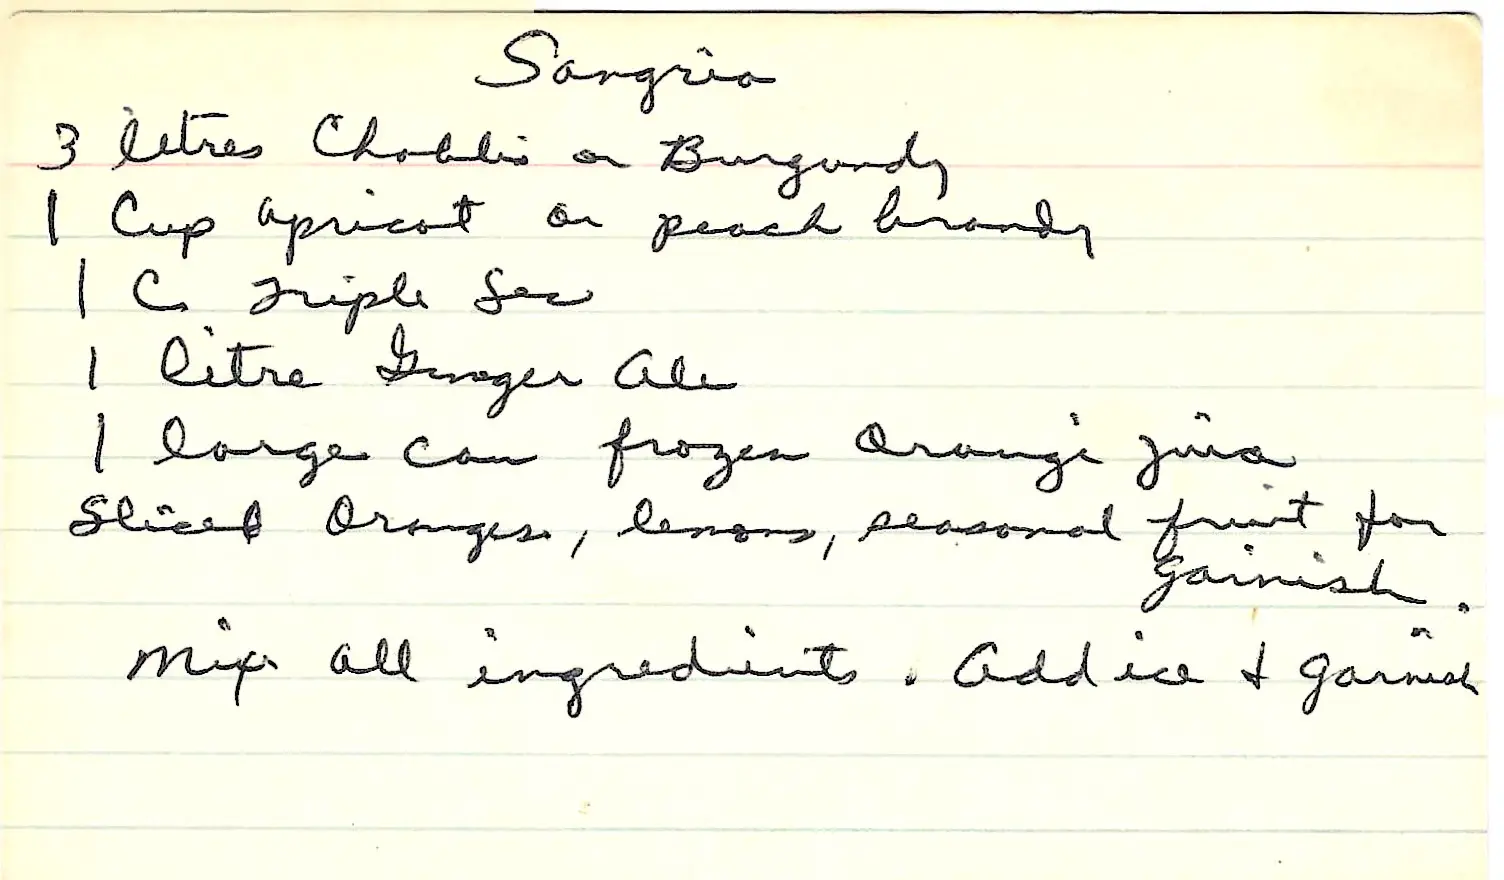 Sangria
3 litres Chablis or Burgundy
1 Cup apricot or peach brandy
1 C. Triple Sec
1 litre Ginger Ale
1 large can frozen Orange juice
Sliced Oranges, lemons, seasonal fruit for
garnish.
Mix all ingredients. Add ice & garnish